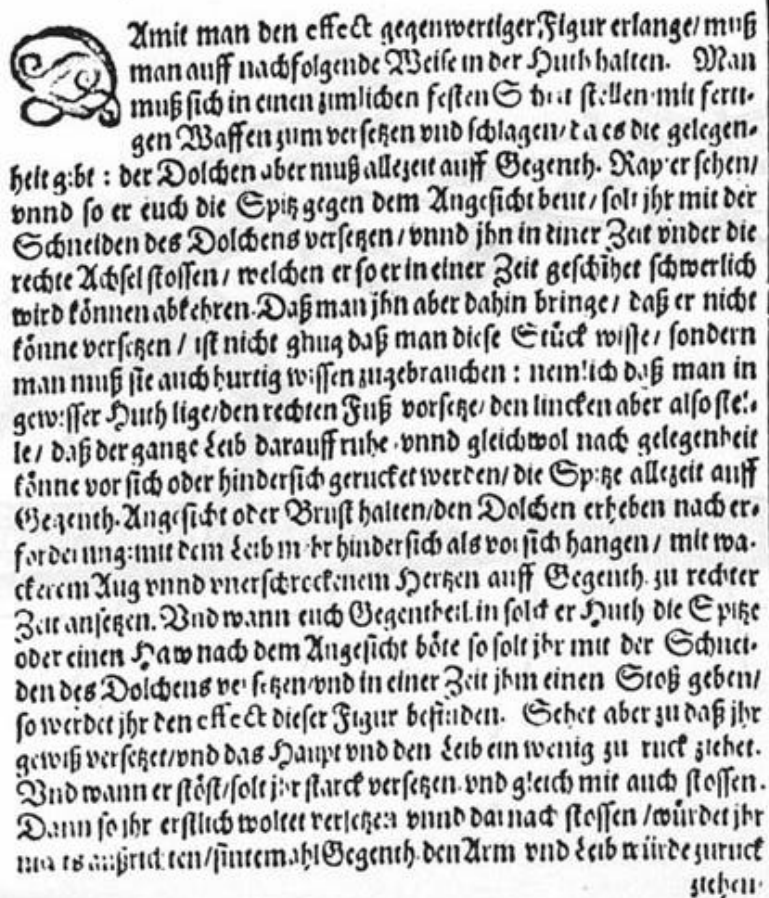 DAmit man den effect gegenwertiger Figur erlange/ muß
man auff nachfolgende Weise in der Huth halten. Man
muß sich in einen zimlichen festen Schrit stellen mit ferti-
gen Waffen zum versetzen vnd schlagen/ da es die gelegen-
heit gibt : der Dolchen aber muß allezeit auff Gegenth. Rapier sehen/
vnnd so er euch die Spitz gegen dem Angesicht beut/ solt jhr mit der
Schneiden des Dolchens versetzen/ vnnd jhn in einer Zeit vnder die
rechte Achsel stossen/ welchen er so er in einer Zeit geschihet schwerlich
wird können abkehren. Daß man jhn aber dahin bringe/ daß er nicht
könne versetzen / ist nicht gnug daß man diese Stück wisse/ sondern
man muß sie auch hurtig wissen zugebrauchen : nemlich daß man in
gewisser Huth lige/ den rechten Fuß vorsetze/ den lincken aber also stel-
le/ daß der gantze Leib darauff ruhe vnnd gleichwol nach gelegenheit
könne vor sich oder hindersich gerucket werden/ die Spitze allezeit auff
Gegenth. Angesicht oder Brust halten/ den Dolchen erheben nach er-
forderung: mit dem Leib mehr hindersich als vor sich hangen/ mit wa-
ckerem Aug vnnd vnerschrockenem Hertzen auff Gegenth. zu rechter
Zeit ansetzen. Vnd wann euch Gegentheil in solcher Huth die Spitze
oder einen Haw nach dem Angesicht böte so solt jhr mit der Schnei-
den des Dolchens versetzen/ vnd in einer Zeit jhm einen Stoß geben/
so werdet jhr den effect dieser Figur befinden. Sehet aber zu daß jhr
gewiß versetzet/ vnd das Haupt vnd den Leib ein wenig zu ruck ziehet.
Vnd wann er stöst/ solt jhr starck versetzen vnd gleich mit auch stossen.
Dann so jhr erstlich woltet versetzen vnnd darnach stossen / würdet jhr
nichts außrichten/ sintemahl Gegenth. den Arm vnd Leib würde zuruck
ziehen.